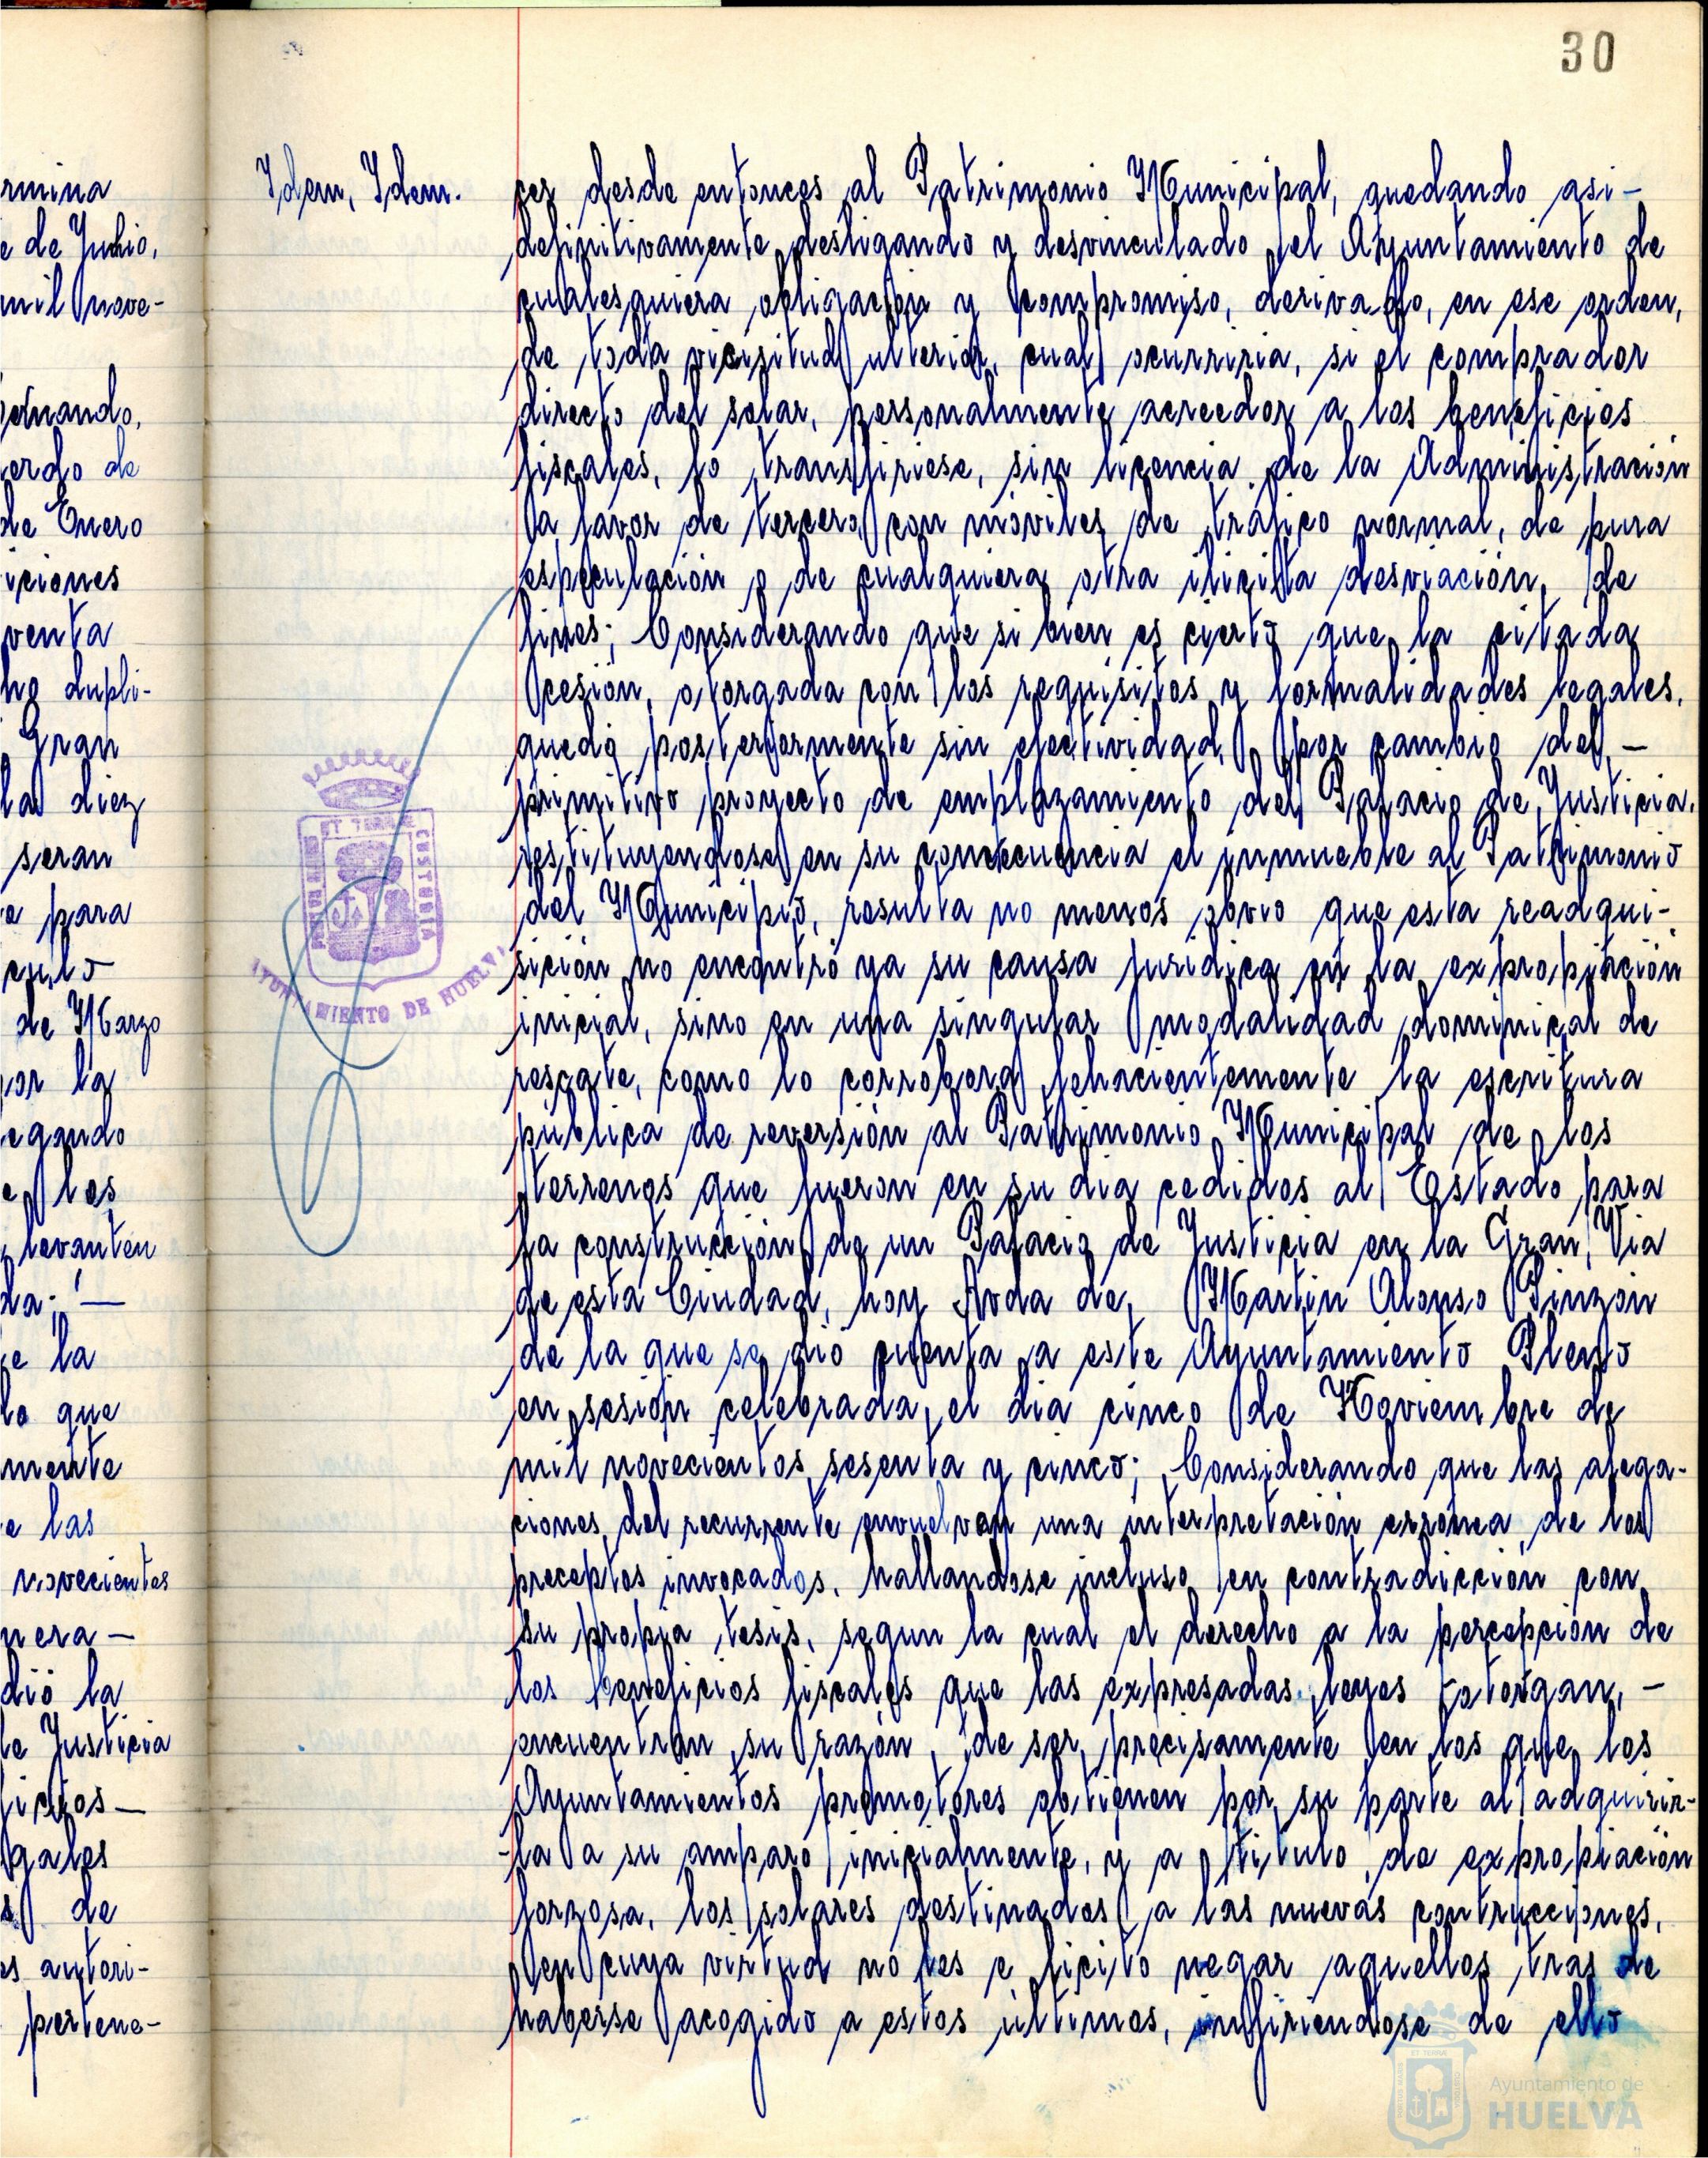 30
Idem, Idem.
cer desde entonces al Patrimonio Municipal, quedando asi-
definitivamente desligando y desvinculado el Ayuntamiento de
cualesquiera obligación y compromiso, derivado, en ese orden,
de toda vicisitud ulterior, cual ocurriria, si el comprador
directo del solar, personalmente acreedor a los beneficios
fiscales, lo transfiriese, sin licencia de la Administración
a favor de tercero, con móviles de tráfico normal, de pura
especulación o de cualquiera otra ilicita desviación, de
fines; Considerando que si bien es cierto que la citada
cesión, otorgada con los requisitos y formalidades legales,
quedó posteriormente sin efectividad, por cambio del -
primitivo proyecto de emplazamiento del Palacio de Justicia,
restituyendose en su consecuencia el inmueble al Patrimonio
del Municipio, resulta no menos obvio que esta readqui-
sición no encontró ya su causa juridica en la expropiación
inicial, sino en una singular modalidad dominical de
rescate, como lo corrobora fehacientemente la escritura
pública de reversión al Patrimonio Municipal de los
terrenos que fueron en su dia cedidos al Estado para
la construcción de un Palacio de Justicia en la Gran Via
de esta Ciudad, hoy Avda de Martin Alonso Pinzón
de la que se dió cuenta a este Ayuntamiento Pleno
en sesión celebrada el dia cinco de Noviembre de
mil novecientos sesenta y cinco; Considerando que las alega-
ciones del recurrente envuelven una interpretación erronea de los
preceptos invocados, hallandose incluso en contradicción con
su propia tesis, segun la cual el derecho a la percepción de
los beneficios fiscales que las expresadas leyes otorgan, -
encuentran su razón de ser, precisamente en los que los
Ayuntamientos promotores obtienen por su parte al adquirir-
-la a su amparo inicialmente, y a titulo de expropiación
forzosa, los solares destinados a las nuevas contrucciones,
en cuya virtud no les e licito negar aquellos tras de
haberse acogido a estos últimos, infiriendose de ello
ET TERRAE CUSTODIA
AYUNTAMIENTO DE HUELVA
rmina
e de Junio,
mil nove-
ernando,
erdo de
de Enero
iciones
venta
ho dupli-
Gran
la diez
seran
a para
culo
de Marzo
por la
egando
e los
levanten
da; -
e la
lo que
mente
e las
novecientos
nera -
dió la
de Justicia
ficios -
gales
de
es autori-
pertene-
Ayuntamiento de
HUELVA